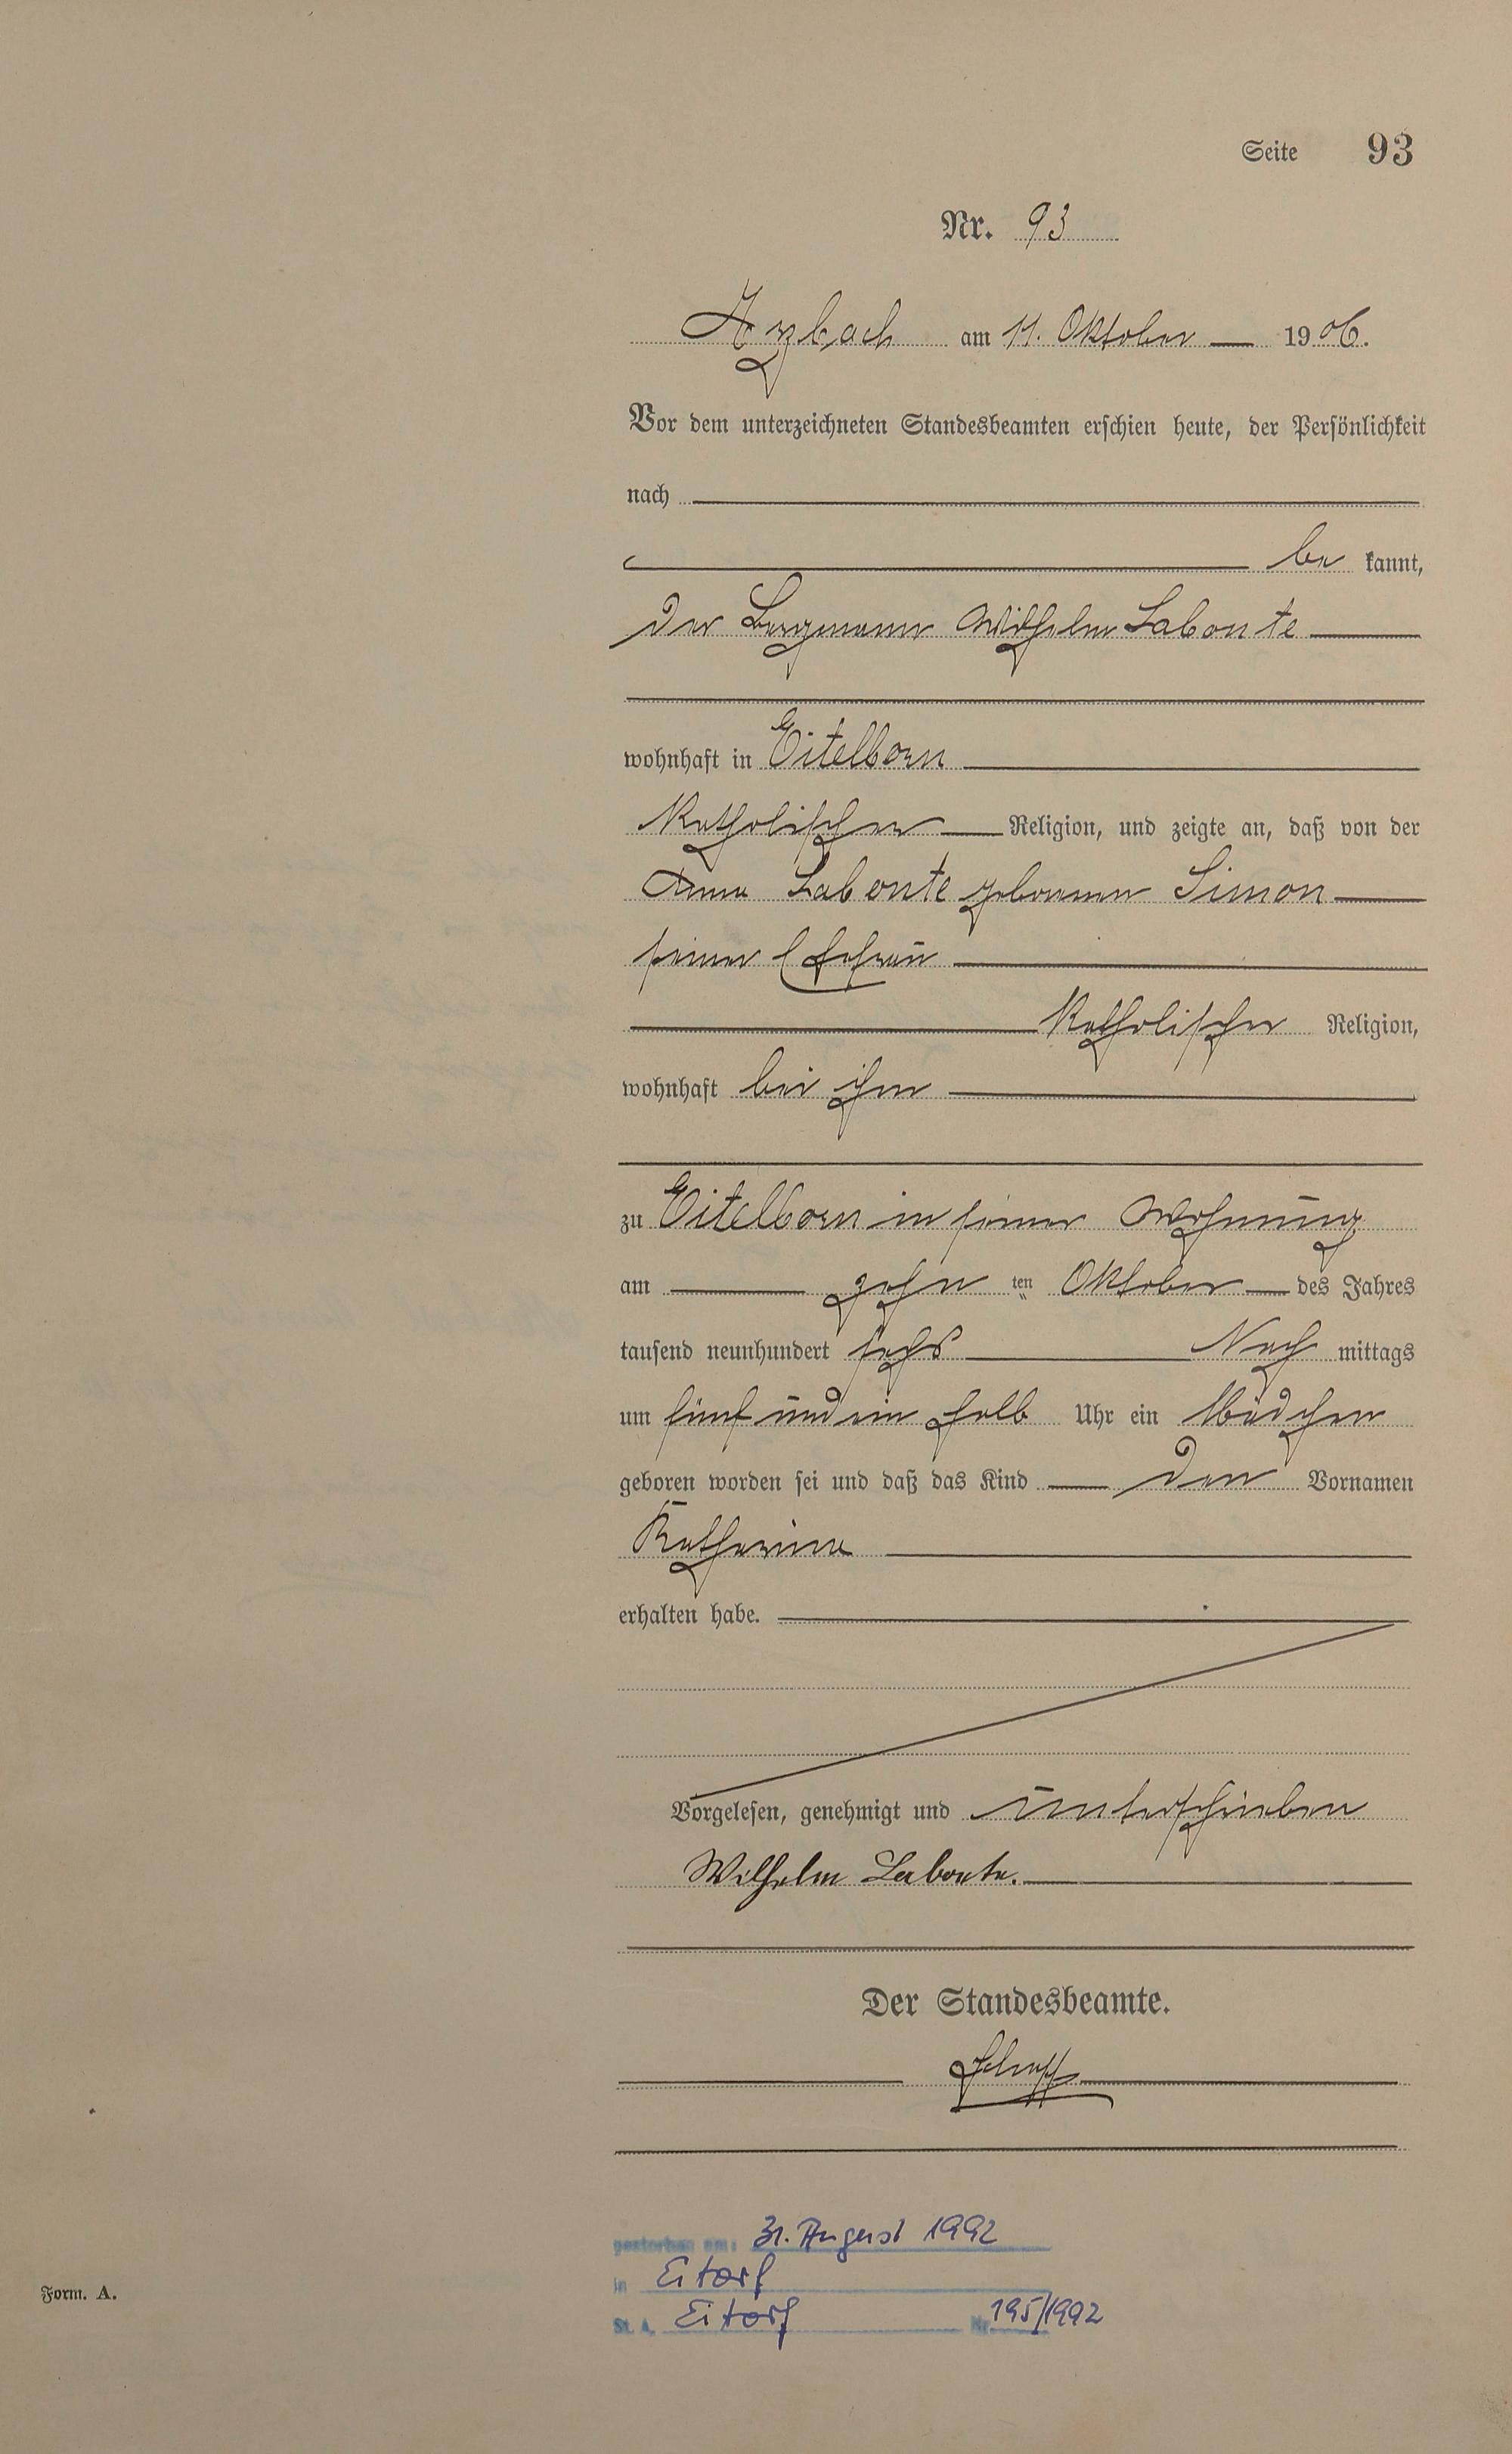 Seite 93
Nr. 93
Arzbach am 11. Oktober 1906.
Vor dem unterzeichneten Standesbeamten erschien heute, der Persönlichkeit
nach
be kannt,
der Bergmann Wilhelm Labonte
wohnhaft in Eitelborn
katholischer Religion, und zeigte an, daß von der
Anna Labonte geborenen Simon
seiner Ehefrau
katholischer Religion,
wohnhaft bei ihm
zu Eitelborn in seiner Wohnung
am zehn ten Oktober des Jahres
tausend neunhundert sechs Nach mittags
um fünf und ein halb Uhr ein Mädchen
geboren worden sei und daß das Kind den Vornamen
Katharina
erhalten habe.
Vorgelesen, genehmigt und unterschrieben
Wilhelm Labonte.
Der Standesbeamte.
gestorben am: 31. August 1992
in Eitorf
Form. A.
St. A. Eitorf Nr. 195/1992